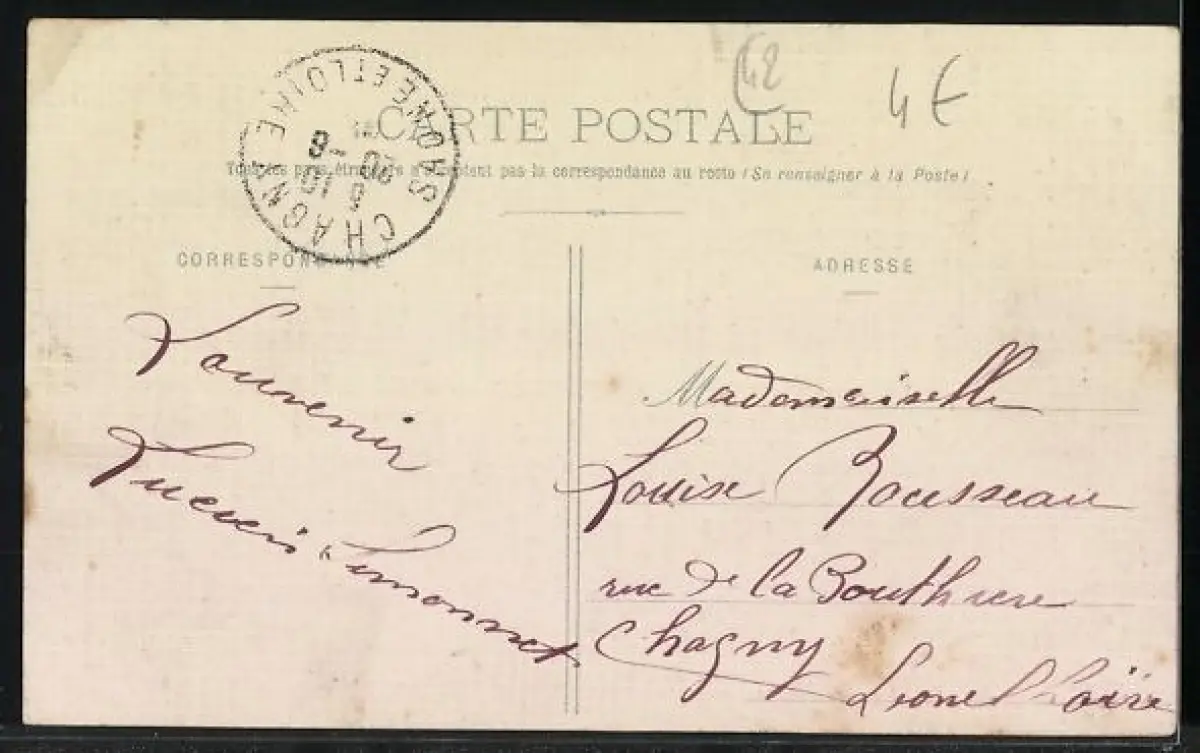 42
4€
CARTE POSTALE
Tous les pays étrangers n'acceptent pas la correspondance au recto (Se renseigner à la Poste)
CHAGNY SAONE ET LOIRE
CORRESPONDANCE
ADRESSE
Souvenir
Simonnet
Mademoiselle
Louise Rousseau
rue de la Bouthiere
Chagny
Loire